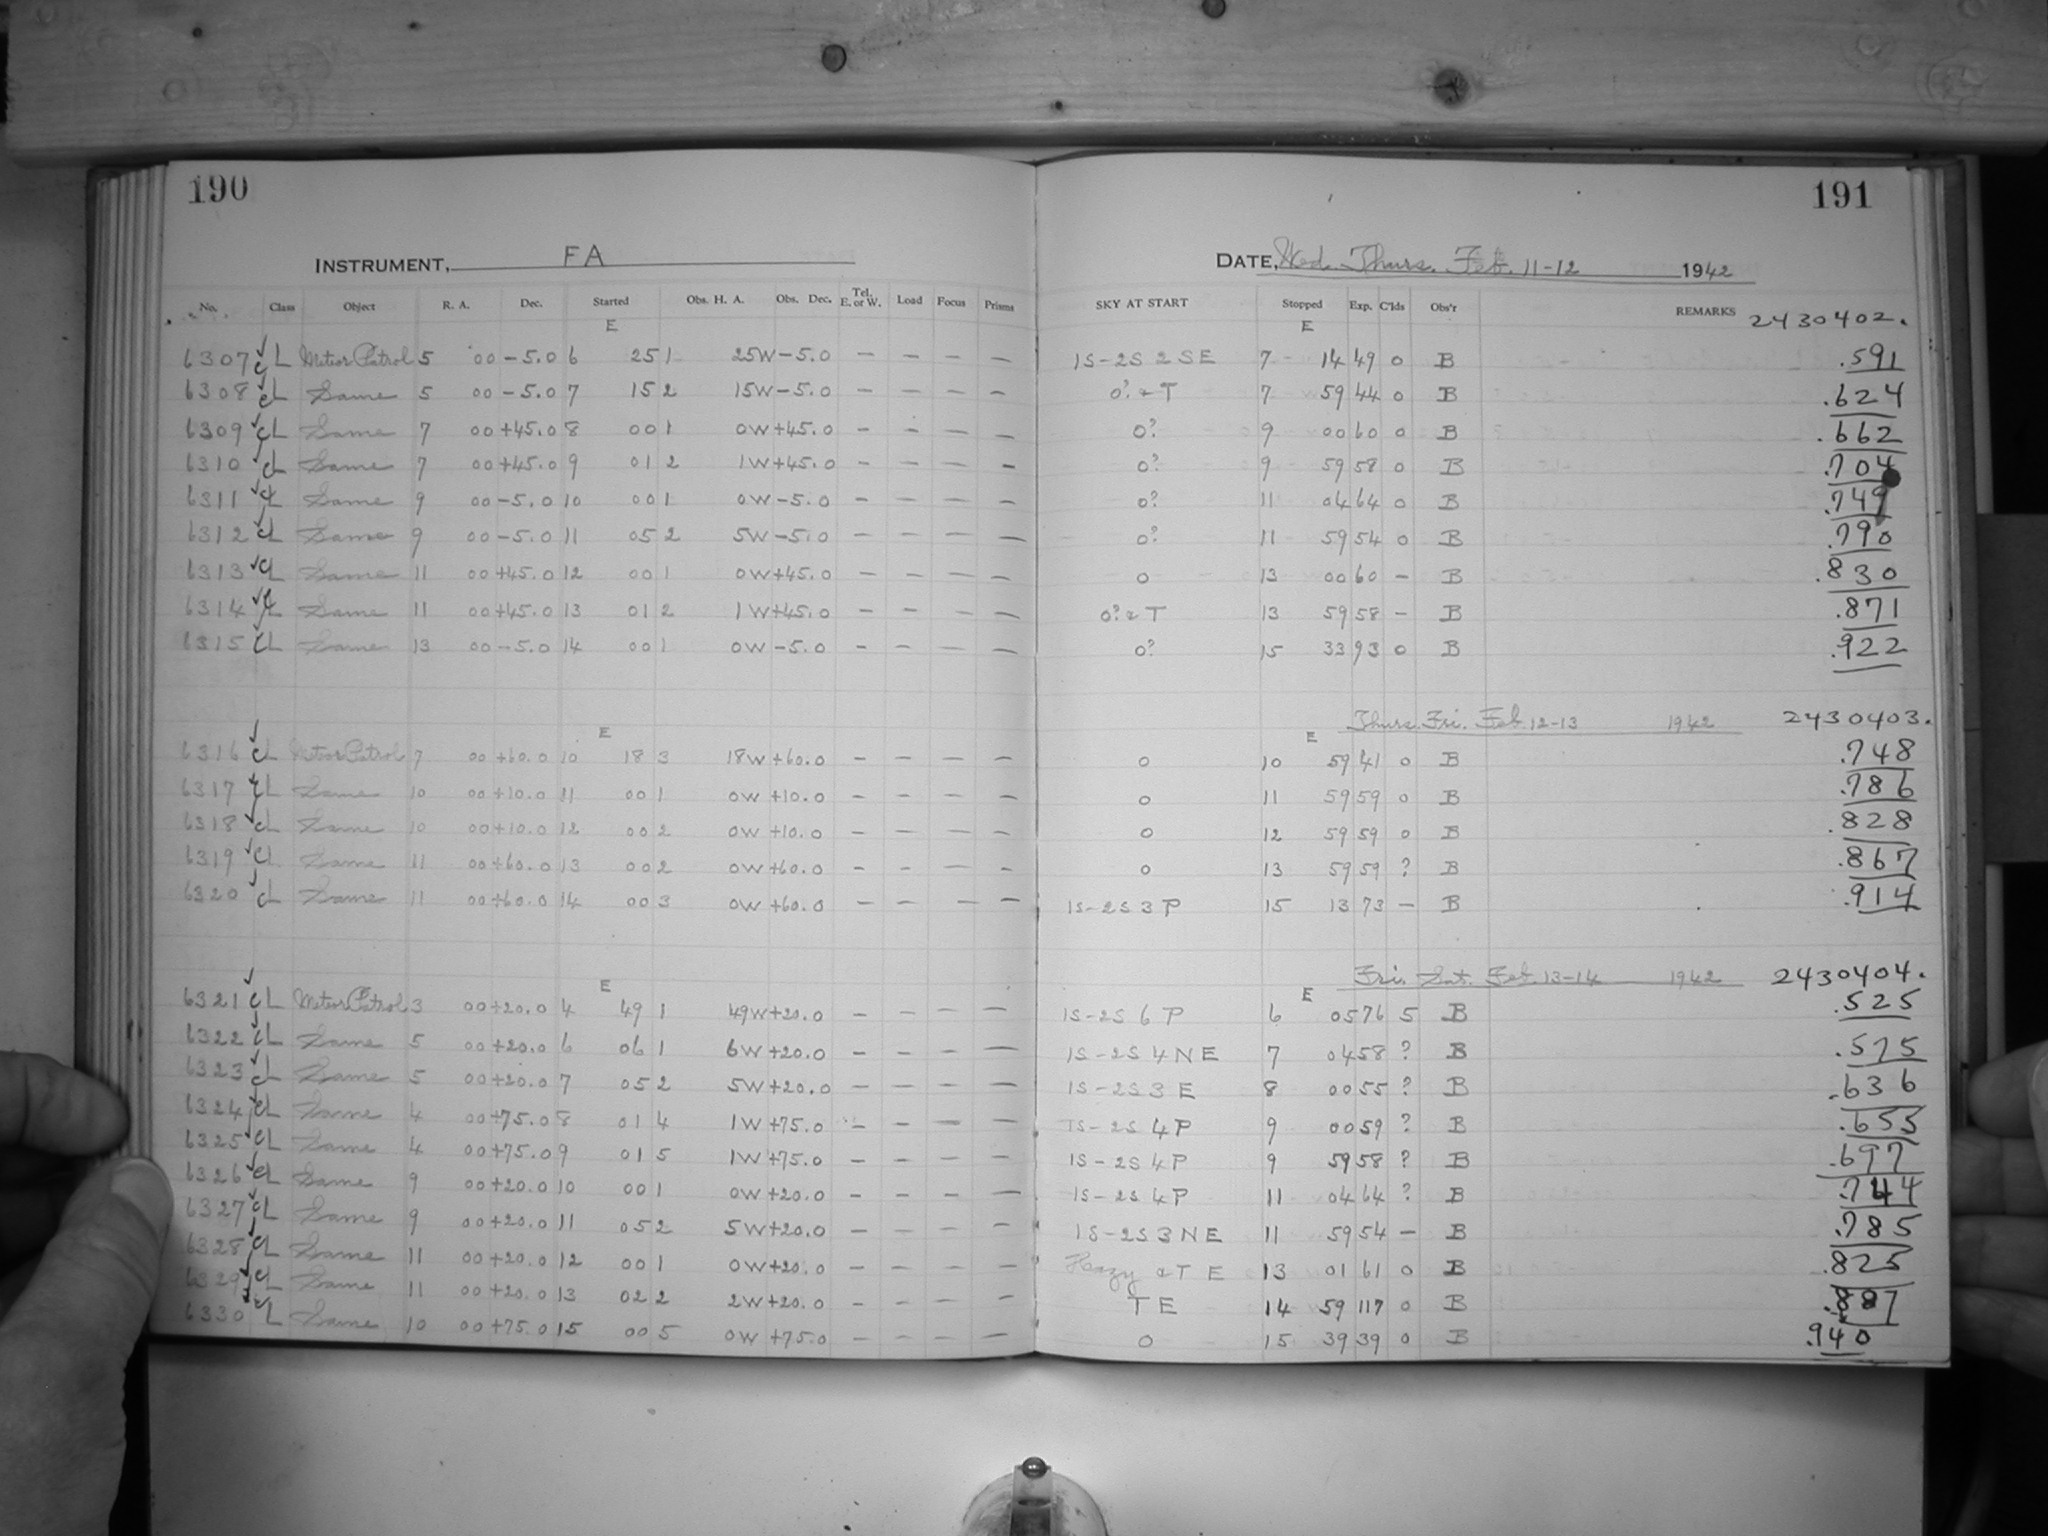 190
191
INSTRUMENT, FA
DATE, Wed. Thurs. Feb. 11-12 1942
No. Class Object R. A. Dec. Started Obs. H. A. Obs. Dec. Tel. E. or W. Load Focus Prisms SKY AT START Stopped Exp. C'lds Obs'r REMARKS 2430402.
E E
6307 ✓ CL Meteor Patrol 5 00 -5.0 6 25 1 25W -5.0 — — — — 1S-2S 2 SE 7 14 49 0 B .591
6308 ✓ CL Same 5 00 -5.0 7 15 2 15W -5.0 — — — — 0? & T 7 59 44 0 B .624
6309 ✓ CL Same 7 00 +45.0 8 00 1 0W +45.0 — — — — 0? 9 00 60 0 B .662
6310 ✓ CL Same 7 00 +45.0 9 01 2 1W +45.0 — — — — 0? 9 59 58 0 B .704
6311 ✓ CL Same 9 00 -5.0 10 00 1 0W -5.0 — — — — 0? 11 04 64 0 B .749
6312 ✓ CL Same 9 00 -5.0 11 05 2 5W -5.0 — — — — 0? 11 59 54 0 B .790
6313 ✓ CL Same 11 00 +45.0 12 00 1 0W +45.0 — — — — 0 13 00 60 — B .830
6314 ✓ CL Same 11 00 +45.0 13 01 2 1W +45.0 — — — — 0? & T 13 59 58 — B .871
6315 ✓ CL Same 13 00 -5.0 14 00 1 0W -5.0 — — — — 0? 15 33 93 0 B .922
Thurs. Fri. Feb. 12-13 1942 2430403.
E E
6316 ✓ CL Meteor Patrol 7 00 +60.0 10 18 3 18W +60.0 — — — — 0 10 59 41 0 B .748
6317 ✓ CL Same 10 00 +10.0 11 00 1 0W +10.0 — — — — 0 11 59 59 0 B .786
6318 ✓ CL Same 10 00 +10.0 12 00 2 0W +10.0 — — — — 0 12 59 59 0 B .828
6319 ✓ CL Same 11 00 +60.0 13 00 2 0W +60.0 — — — — 0 13 59 59 ? B .867
6320 ✓ CL Same 11 00 +60.0 14 00 3 0W +60.0 — — — — 1S-2S 3 P 15 13 73 — B .914
Fri. Sat. Feb. 13-14 1942 2430404.
E E
6321 ✓ CL Meteor Patrol 3 00 +20.0 4 49 1 49W +20.0 — — — — 1S-2S 6 P 6 05 76 5 B .525
6322 ✓ CL Same 5 00 +20.0 6 06 1 6W +20.0 — — — — 1S-2S 4 NE 7 04 58 ? B .575
6323 ✓ CL Same 5 00 +20.0 7 05 2 5W +20.0 — — — — 1S-2S 3 E 8 00 55 ? B .636
6324 ✓ CL Same 4 00 +75.0 8 01 4 1W +75.0 — — — — 1S-2S 4 P 9 00 59 ? B .653
6325 ✓ CL Same 4 00 +75.0 9 01 5 1W +75.0 — — — — 1S-2S 4 P 9 59 58 ? B .697
6326 ✓ CL Same 9 00 +20.0 10 00 1 0W +20.0 — — — — 1S-2S 4 P 11 04 64 ? B .744
6327 ✓ CL Same 9 00 +20.0 11 05 2 5W +20.0 — — — — 1S-2S 3 NE 11 59 54 — B .785
6328 ✓ CL Same 11 00 +20.0 12 00 1 0W +20.0 — — — — Hazy & T E 13 01 61 0 B .825
6329 ✓ CL Same 11 00 +20.0 13 02 2 2W +20.0 — — — — T E 14 59 117 0 B .887
6330 ✓ CL Same 10 00 +75.0 15 00 5 0W +75.0 — — — — 0 15 39 39 0 B .940